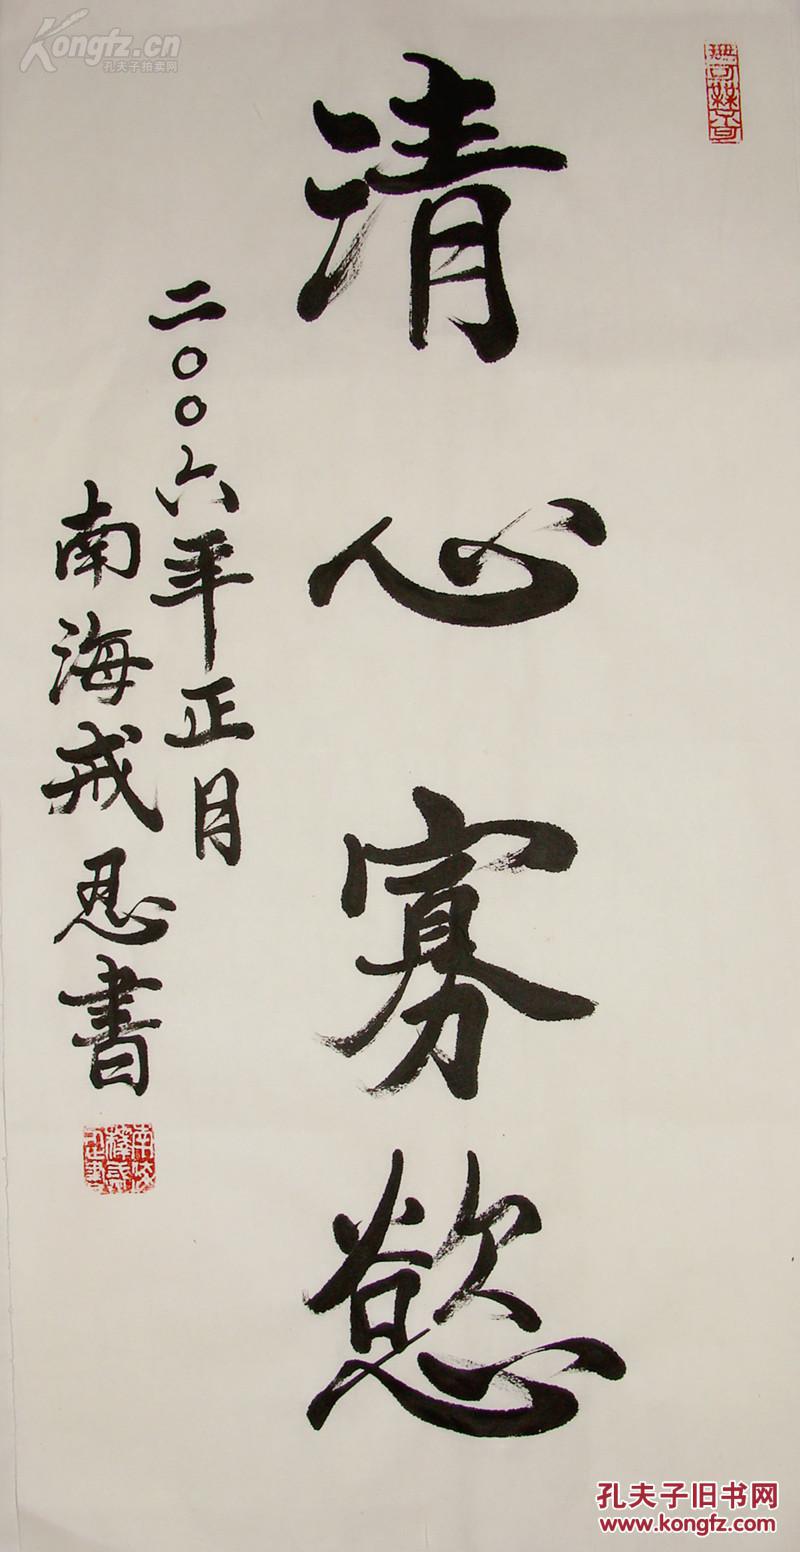 清心寡慾
二〇〇六年正月
南海戒忍書
Kongfz.cn
孔夫子拍卖网
孔夫子旧书网
www.kongfz.com